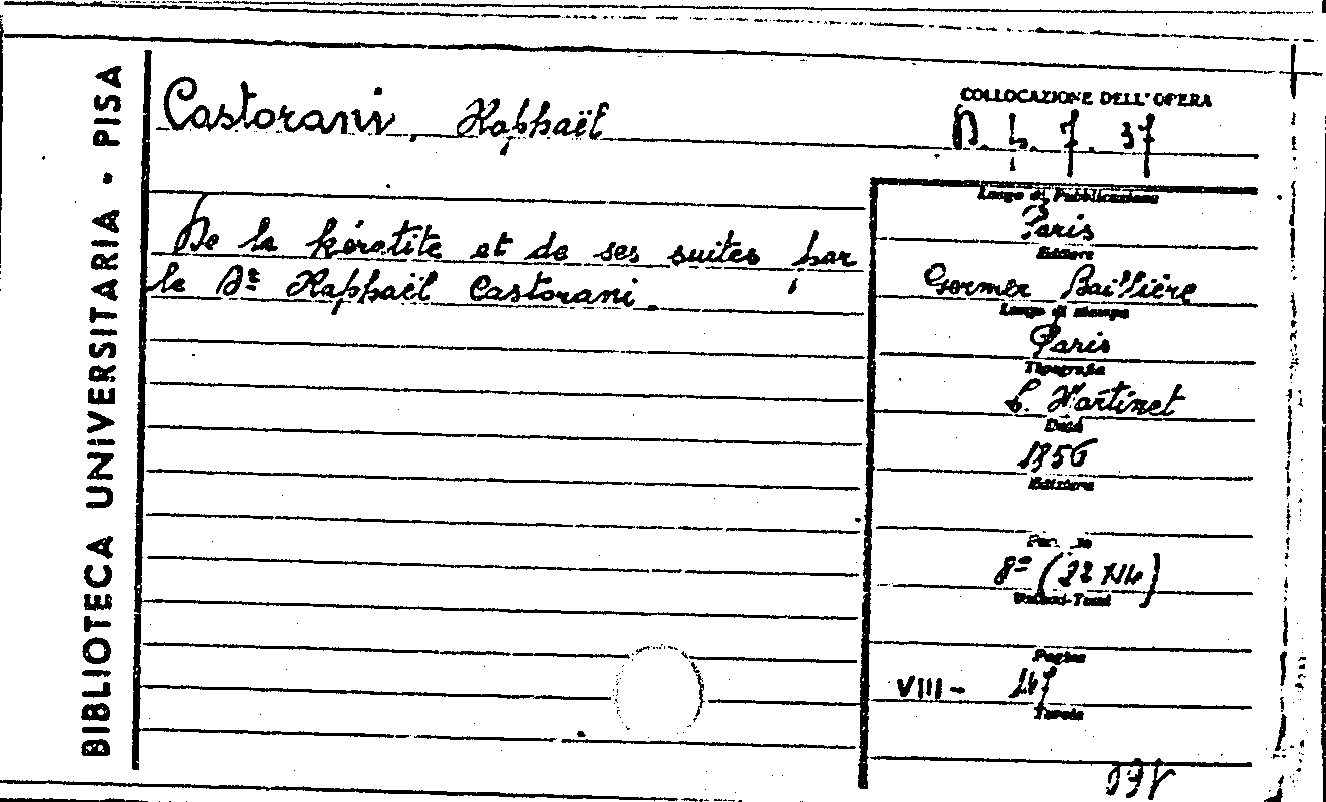 BIBLIOTECA UNIVERSITARIA - PISA
Castorani, Raphaël
COLLOCAZIONE DELL'OPERA
7. 37
Luogo di Pubblicazione
Paris
De la kératite et de ses suites par
le Dr Raphaël Castorani.
Editore
Germer Baillière
Luogo di stampa
Paris
Tipografia
L. Martinet
Data
1856
Edizione
8º (22 X14)
Volumi-Tomi
Pagine
VIII -
Tavole